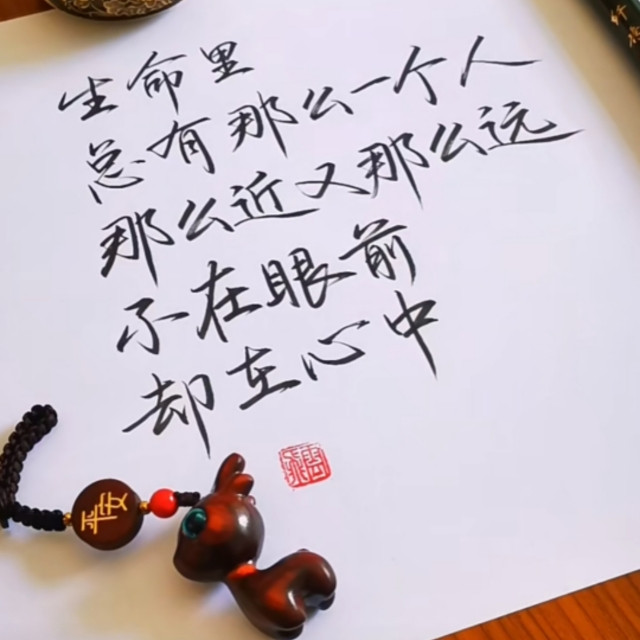 生命里
总有那么一个人
那么近又那么远
不在眼前
却在心中
平安